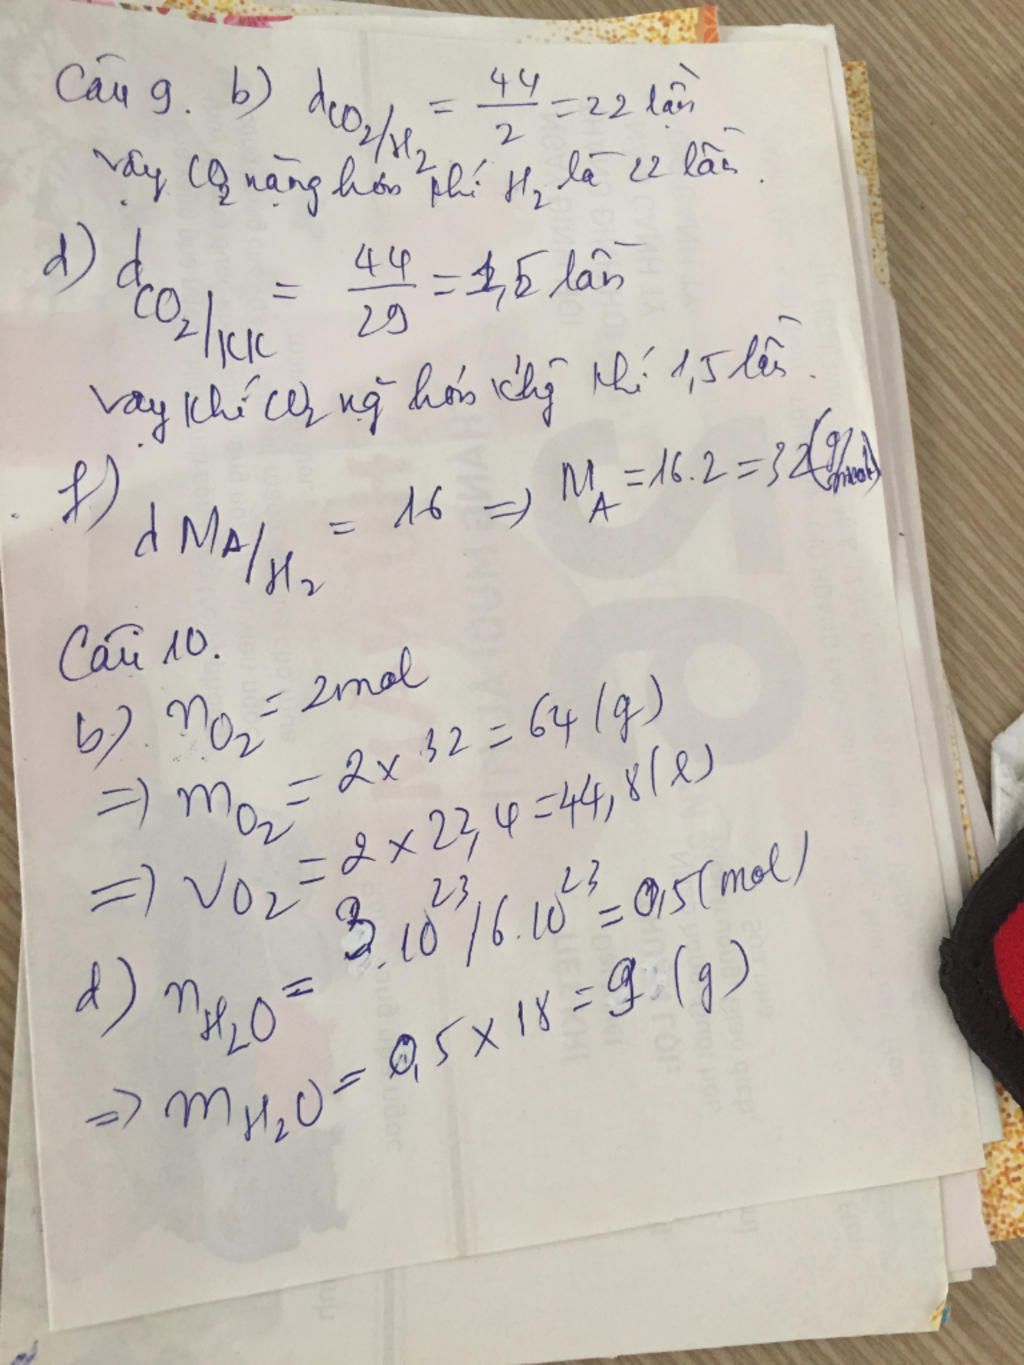 Câu 9. b) dCO2/H2 = 44/2 = 22 lần
Vậy CO2 nặng hơn khí H2 là 22 lần.
d) dCO2/KK = 44/29 = 1,5 lần
Vậy khí CO2 nặg hơn khôg khí 1,5 lần.
f) d MA/H2 = 16 => MA = 16.2 = 32 (g/mol)
Câu 10.
b) nO2 = 2mol
=> mO2 = 2 x 32 = 64 (g)
=> VO2 = 2 x 22,4 = 44,8 (l)
d) nH2O = 3.10^23/6.10^23 = 0,5 (mol)
=> mH2O = 0,5 x 18 = 9 (g)